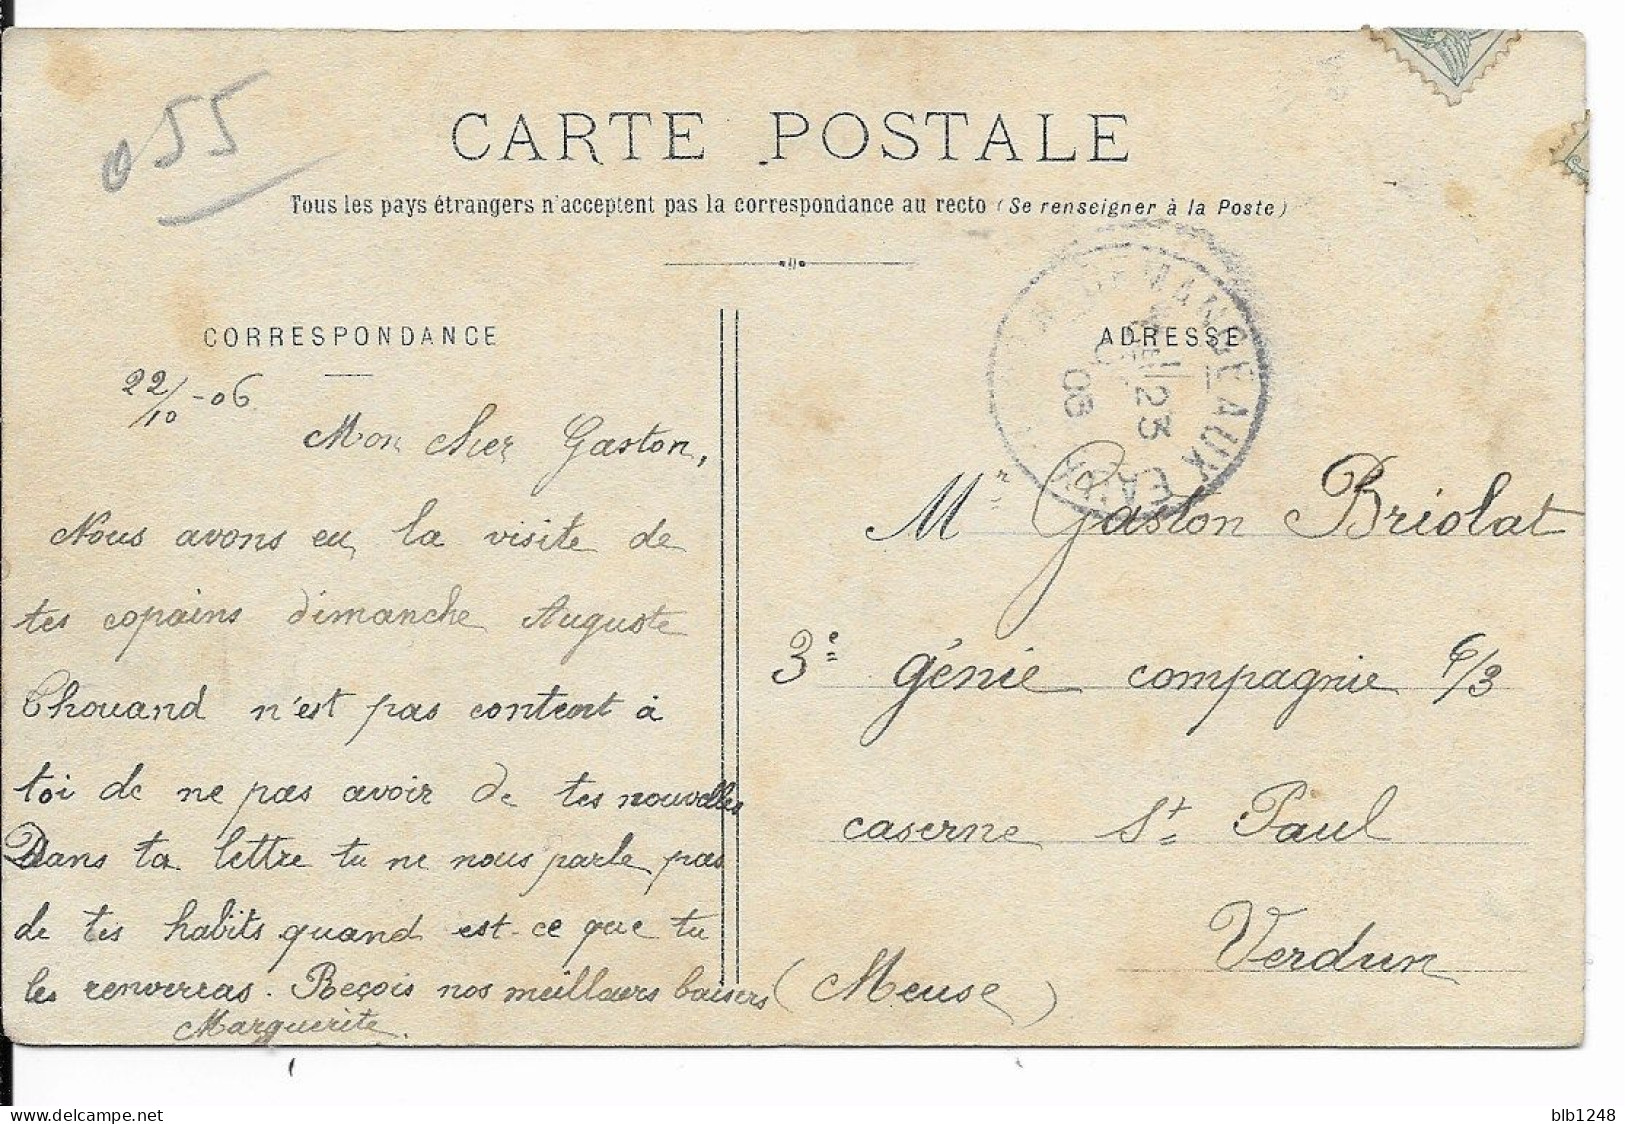 055
CARTE POSTALE
Tous les pays étrangers n'acceptent pas la correspondance au recto (Se renseigner à la Poste)
CORRESPONDANCE
22/10-06
Mon cher Gaston,
Nous avons eu la visite de
tes copains dimanche Auguste
Chouand n'est pas content à
toi de ne pas avoir de tes nouvelles
Dans ta lettre tu ne nous parle pas
de tes habits quand est-ce que tu
les renverras. Reçois nos meilleurs baisers
Marguerite.
ADRESSE
DEMANGE AUX EAUX
23
06
Mr Gaston Briolat
3e génie compagnie 6/3
caserne St Paul
Verdun
(Meuse)
blb1248